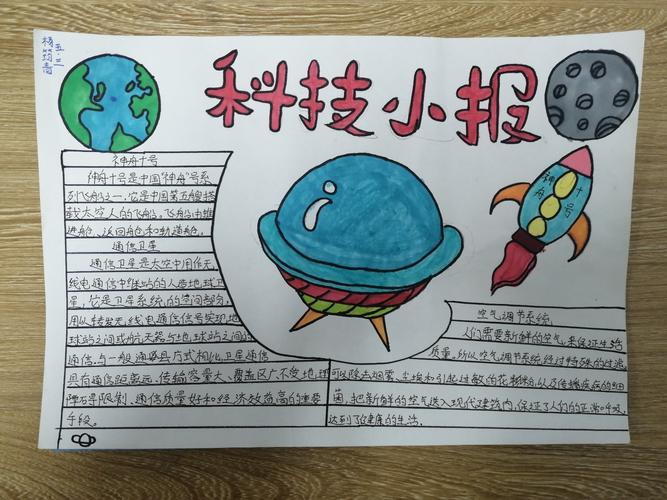 五.三
科技小报
神舟十号
神舟十号
神舟十号是中国"神舟"号系
列飞船之一,它是中国第五艘搭
载太空人的飞船,飞船由推
进舱、返回舱和轨道舱。
通信卫星
通信卫星是太空中用作无
线电通信中继站的人造地球卫
星,它是卫星系统的空间部分,
用以转发无线电通信信号实现地
球站之间或航天器与地球站之间的
通信。与一般通信方式相比,卫星通信
具有通信距离远、传输容量大、覆盖区广不受地理
障碍限制、通信质量好和经济效益高的重要
手段。
空气调节系统
人们需要新鲜的空气来保证生活
质量,所以空气调节系统经过特殊的过滤,
可以除去烟雾、尘埃和引起过敏的花粉粒,以及传播疾病的细
菌,把新鲜的空气送入现代建筑内,保证了人们的正常呼吸,
达到了健康的生活。